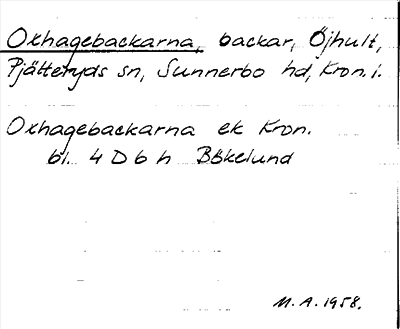 Oxhagebackarna, backar, Öjhult,
Pjätteryds sn, Sunnerbo hd, Kron. l.
Oxhagebackarna ek Kron.
bl. 4 D 6 h Bökelund
M. A. 1958.